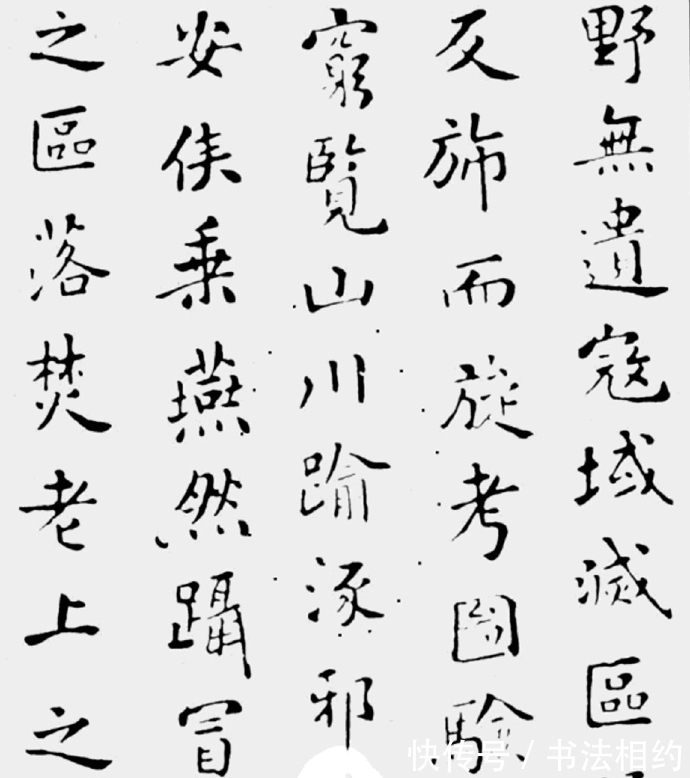 野無遺寇域滅區
反旆而旋考圖驗
窮覽山川踰涿邪
安侯乘燕然躡冒
之區落焚老上之
快传号 / 书法相约